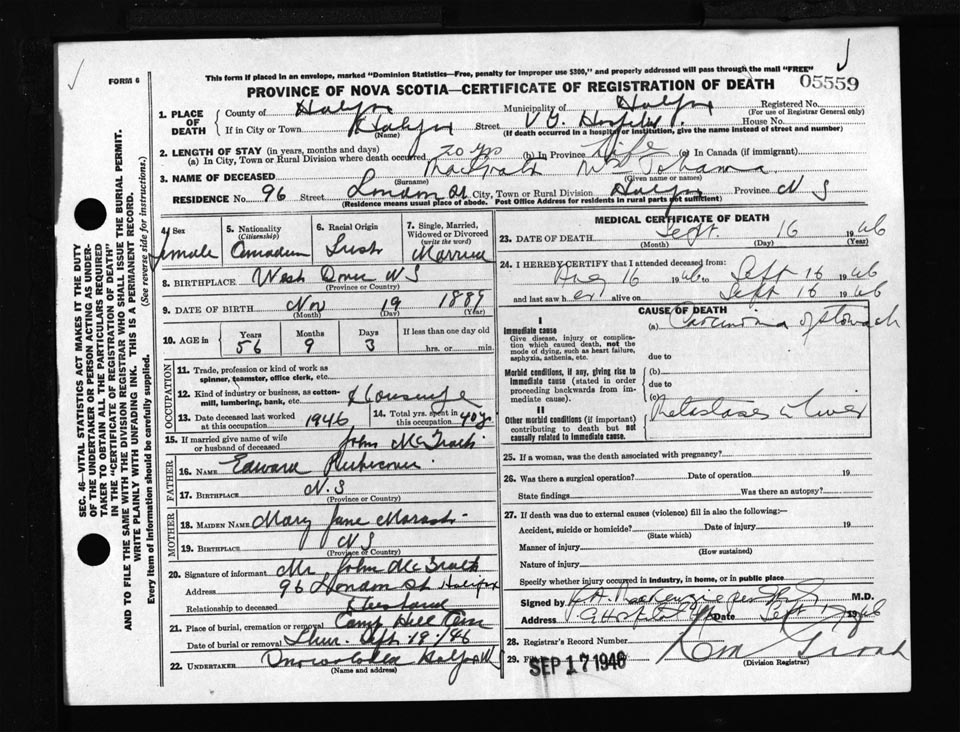 FORM 6
This form if placed in an envelope, marked "Dominion Statistics—Free, penalty for improper use $300," and properly addressed will pass through the mail "FREE"
PROVINCE OF NOVA SCOTIA—CERTIFICATE OF REGISTRATION OF DEATH
05559
1. PLACE OF DEATH
County of Halifax Municipality of Halifax Registered No.
(For use of Registrar General only)
If in City or Town Halifax Street V G. Hospital House No.
(Name) (If death occurred in a hospital or institution, give the name instead of street and number)
2. LENGTH OF STAY (in years, months and days)
(a) In City, Town or Rural Division where death occurred 20 yrs (b) in Province Life (c) in Canada (if immigrant)
3. NAME OF DECEASED McGrath Mrs Johanna
(Surname) (Given name or names)
RESIDENCE No. 96 Street London St City, Town or Rural Division Halifax Province N S
(Residence means usual place of abode. Post Office Address for residents in rural parts not sufficient)
4. Sex Female
5. Nationality (Citizenship) Canadian
6. Racial Origin Irish
7. Single, Married, Widowed or Divorced (write the word) Married
8. BIRTHPLACE West Dover N S
(Province or Country)
9. DATE OF BIRTH Nov 19 1889
(Month) (Day) (Year)
10. AGE in Years 56 Months 9 Days 3 If less than one day old hrs. or min.
OCCUPATION
11. Trade, profession or kind of work as spinner, teamster, office clerk, etc.
12. Kind of industry or business, as cotton-mill, lumbering, bank, etc. Housewife
13. Date deceased last worked at this occupation 1946
14. Total yrs. spent in this occupation 40 yrs
15. If married give name of wife or husband of deceased John McGrath
FATHER
16. NAME Edward
17. BIRTHPLACE N. S
(Province or Country)
MOTHER
18. MAIDEN NAME Mary Jane
19. BIRTHPLACE N S
(Province or Country)
20. Signature of informant Mr John McGrath
Address 96 London St Halifax
Relationship to deceased Husband
21. Place of burial, cremation or removal Camp Hill Cem
Date of burial or removal Thur. Sept 18/46
22. UNDERTAKER Halifax N S
(Name and address)
MEDICAL CERTIFICATE OF DEATH
23. DATE OF DEATH Sept. 16 1946
(Month) (Day) (Year)
24. I HEREBY CERTIFY that I attended deceased from:
Aug 16 1946 to Sept 16 1946
and last saw her alive on Sept 16 1946
CAUSE OF DEATH
I
Immediate cause
Give disease, injury or complication which caused death, not the mode of dying, such as heart failure, asphyxia, asthenia, etc.
(a) Carcinoma of stomach
due to
Morbid conditions, if any, giving rise to immediate cause (stated in order proceeding backwards from immediate cause).
(b)
due to
(c)
II
Other morbid conditions (if important) contributing to death but not causally related to immediate cause.
Metastases in liver
25. If a woman, was the death associated with pregnancy?
26. Was there a surgical operation? Date of operation 19
State findings Was there an autopsy?
27. If death was due to external causes (violence) fill in also the following:—
Accident, suicide or homicide? Date of injury 19
(State which)
Manner of injury
(How sustained)
Nature of injury
Specify whether injury occurred in industry, in home, or in public place
Signed by M.D.
Address Date Sept 17 1946
28. Registrar's Record Number
29. SEP 17 1946
(Division Registrar)
SEC. 46—VITAL STATISTICS ACT MAKES IT THE DUTY
OF THE UNDERTAKER OR PERSON ACTING AS UNDERTAKER
TO OBTAIN ALL THE PARTICULARS REQUIRED
IN THE "CERTIFICATE OF REGISTRATION OF DEATH"
AND TO FILE THE SAME WITH THE DIVISION REGISTRAR WHO SHALL ISSUE THE BURIAL PERMIT.
WRITE PLAINLY WITH UNFADING INK. THIS IS A PERMANENT RECORD.
Every item of information should be carefully supplied. (See reverse side for instructions.)